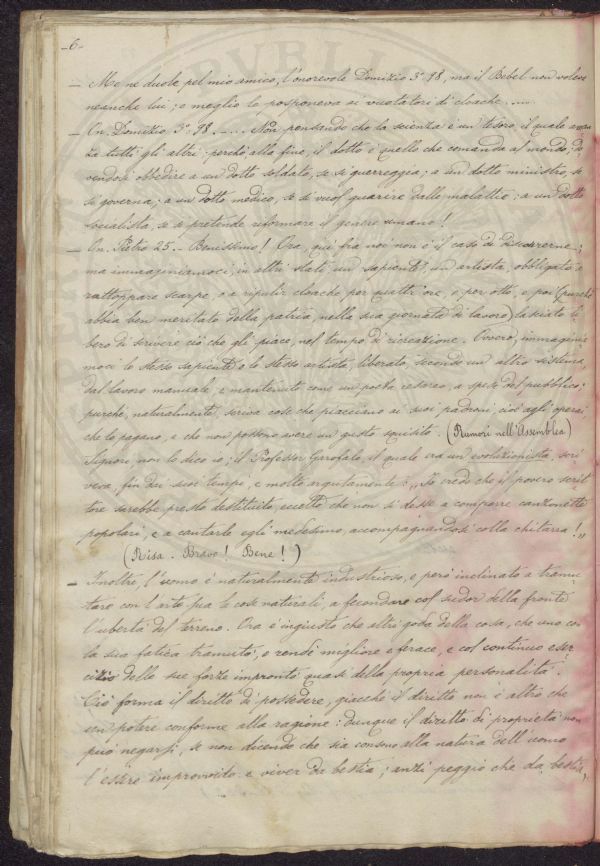 -6-
— Me ne duole pel mio amico, l'onorevole Domizio 3° 78, ma il Bebel non voleva
neanche lui; o meglio lo posponeva ai vuotatori di cloache.....
— On. Domizio, 3° 78. ..... Non pensando che la scienza è un tesoro il quale avan
za tutti gli altri: perchè alla fine, il dotto è quello che comanda al mondo, do
vendosi obbedire a un dotto soldato, se si guerreggia; a un dotto ministro, se
si governa; a un dotto medico, se si vuol guarire dalle malattie; a un dotto
socialista, se si pretende riformare il genere umano!
— On. Pietro 25. - Benissimo! Ora, qui fra noi non è il caso di discorrerne;
ma immaginiamoci, in altri stati, un sapiente, un artista, obbligato a
rattoppare scarpe, o a ripulir cloache per quattr'ore, o per otto, e poi (purchè
abbia ben meritato della patria nella sua giornata di lavoro) lasciato li
bero di scrivere ciò che gli piace, nel tempo di ricreazione. Ovvero, immaginia
moci lo stesso sapiente o lo stesso artista, liberato, secondo un altro sistema,
dal lavoro manuale, e mantenuto come un poeta cesareo, a spese del pubblico;
purchè, naturalmente, scriva cose che piacciano ai suoi padroni, cioè agli operai,
che lo pagano, e che non possono avere un gusto squisito. (Rumori nell'Assemblea)
Signori, non lo dico io; il Professor Garofalo, il quale era un evoluzionista, scri
veva, fin dai suoi tempi, e molto argutamente: "Io credo che il povero scrit
tore sarebbe presto destituito, eccetto che non si desse a comporre canzonette
popolari, e a cantarle egli medesimo, accompagnandosi colla chitarra!"
(Risa. Bravo! Bene!)
— Inoltre, l'uomo è naturalmente industrioso, e però inclinato a tramu
tare con l'arte sua le cose naturali, a fecondare col sudor della fronte
l'ubertà del terreno. Ora è ingiusto che altri goda della cosa, che uno con
la sua fatica tramutò, e rendè migliore e ferace, e col continuo eser
cizio delle sue forze improntò quasi della propria personalità.
Ciò forma il diritto di possedere, giacchè il diritto non è altro che
un potere conforme alla ragione: dunque il diritto di proprietà non
può negarsi, se non dicendo che sia consono alla natura dell'uomo
l'essere improvvido e viver da bestia; anzi peggio che da bestia,